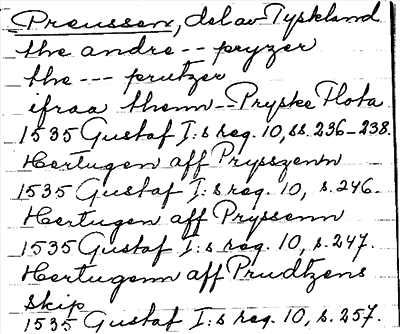 Preussen, del av Tyskland
the andre -- pryzer
the --- prutzer
ifraa themm -- Pryske Flota
1535 Gustaf I:s reg. 10, ss. 236-238.
Hertugen aff Prysszenn
1535 Gustaf I:s reg. 10, s. 246.
Hertugen aff Pryssenn
1535 Gustaf I:s reg. 10, s. 247.
Hertugenn aff Prudtzens
skip
1535 Gustaf I:s reg. 10, s. 257.